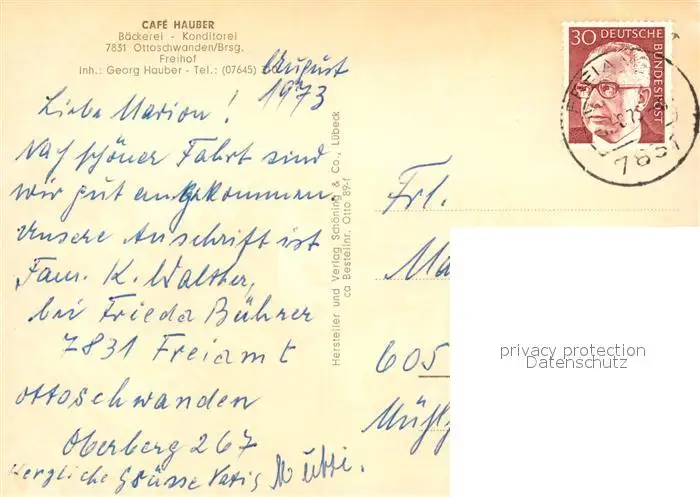 CAFÉ HAUBER
Bäckerei - Konditorei
7831 Ottoschwanden/Brsg.
Freihof
Inh.: Georg Hauber - Tel.: (07645)
August
1973
Liebe Marion!
Nach schöner Fahrt sind
wir gut angekommen.
Unsere Anschrift ist
Fam. K. Walther,
bei Frieda Bührer
7831 Freiamt
Ottoschwanden
Oberberg 267
Herzliche Grüsse Vati Mutti.
Hersteller und Verlag Schöning & Co., Lübeck
ca Bestellnr. Otto 89-f
30 DEUTSCHE
BUNDESPOST
7831
Frl.
Ma
605
privacy protection
Datenschutz